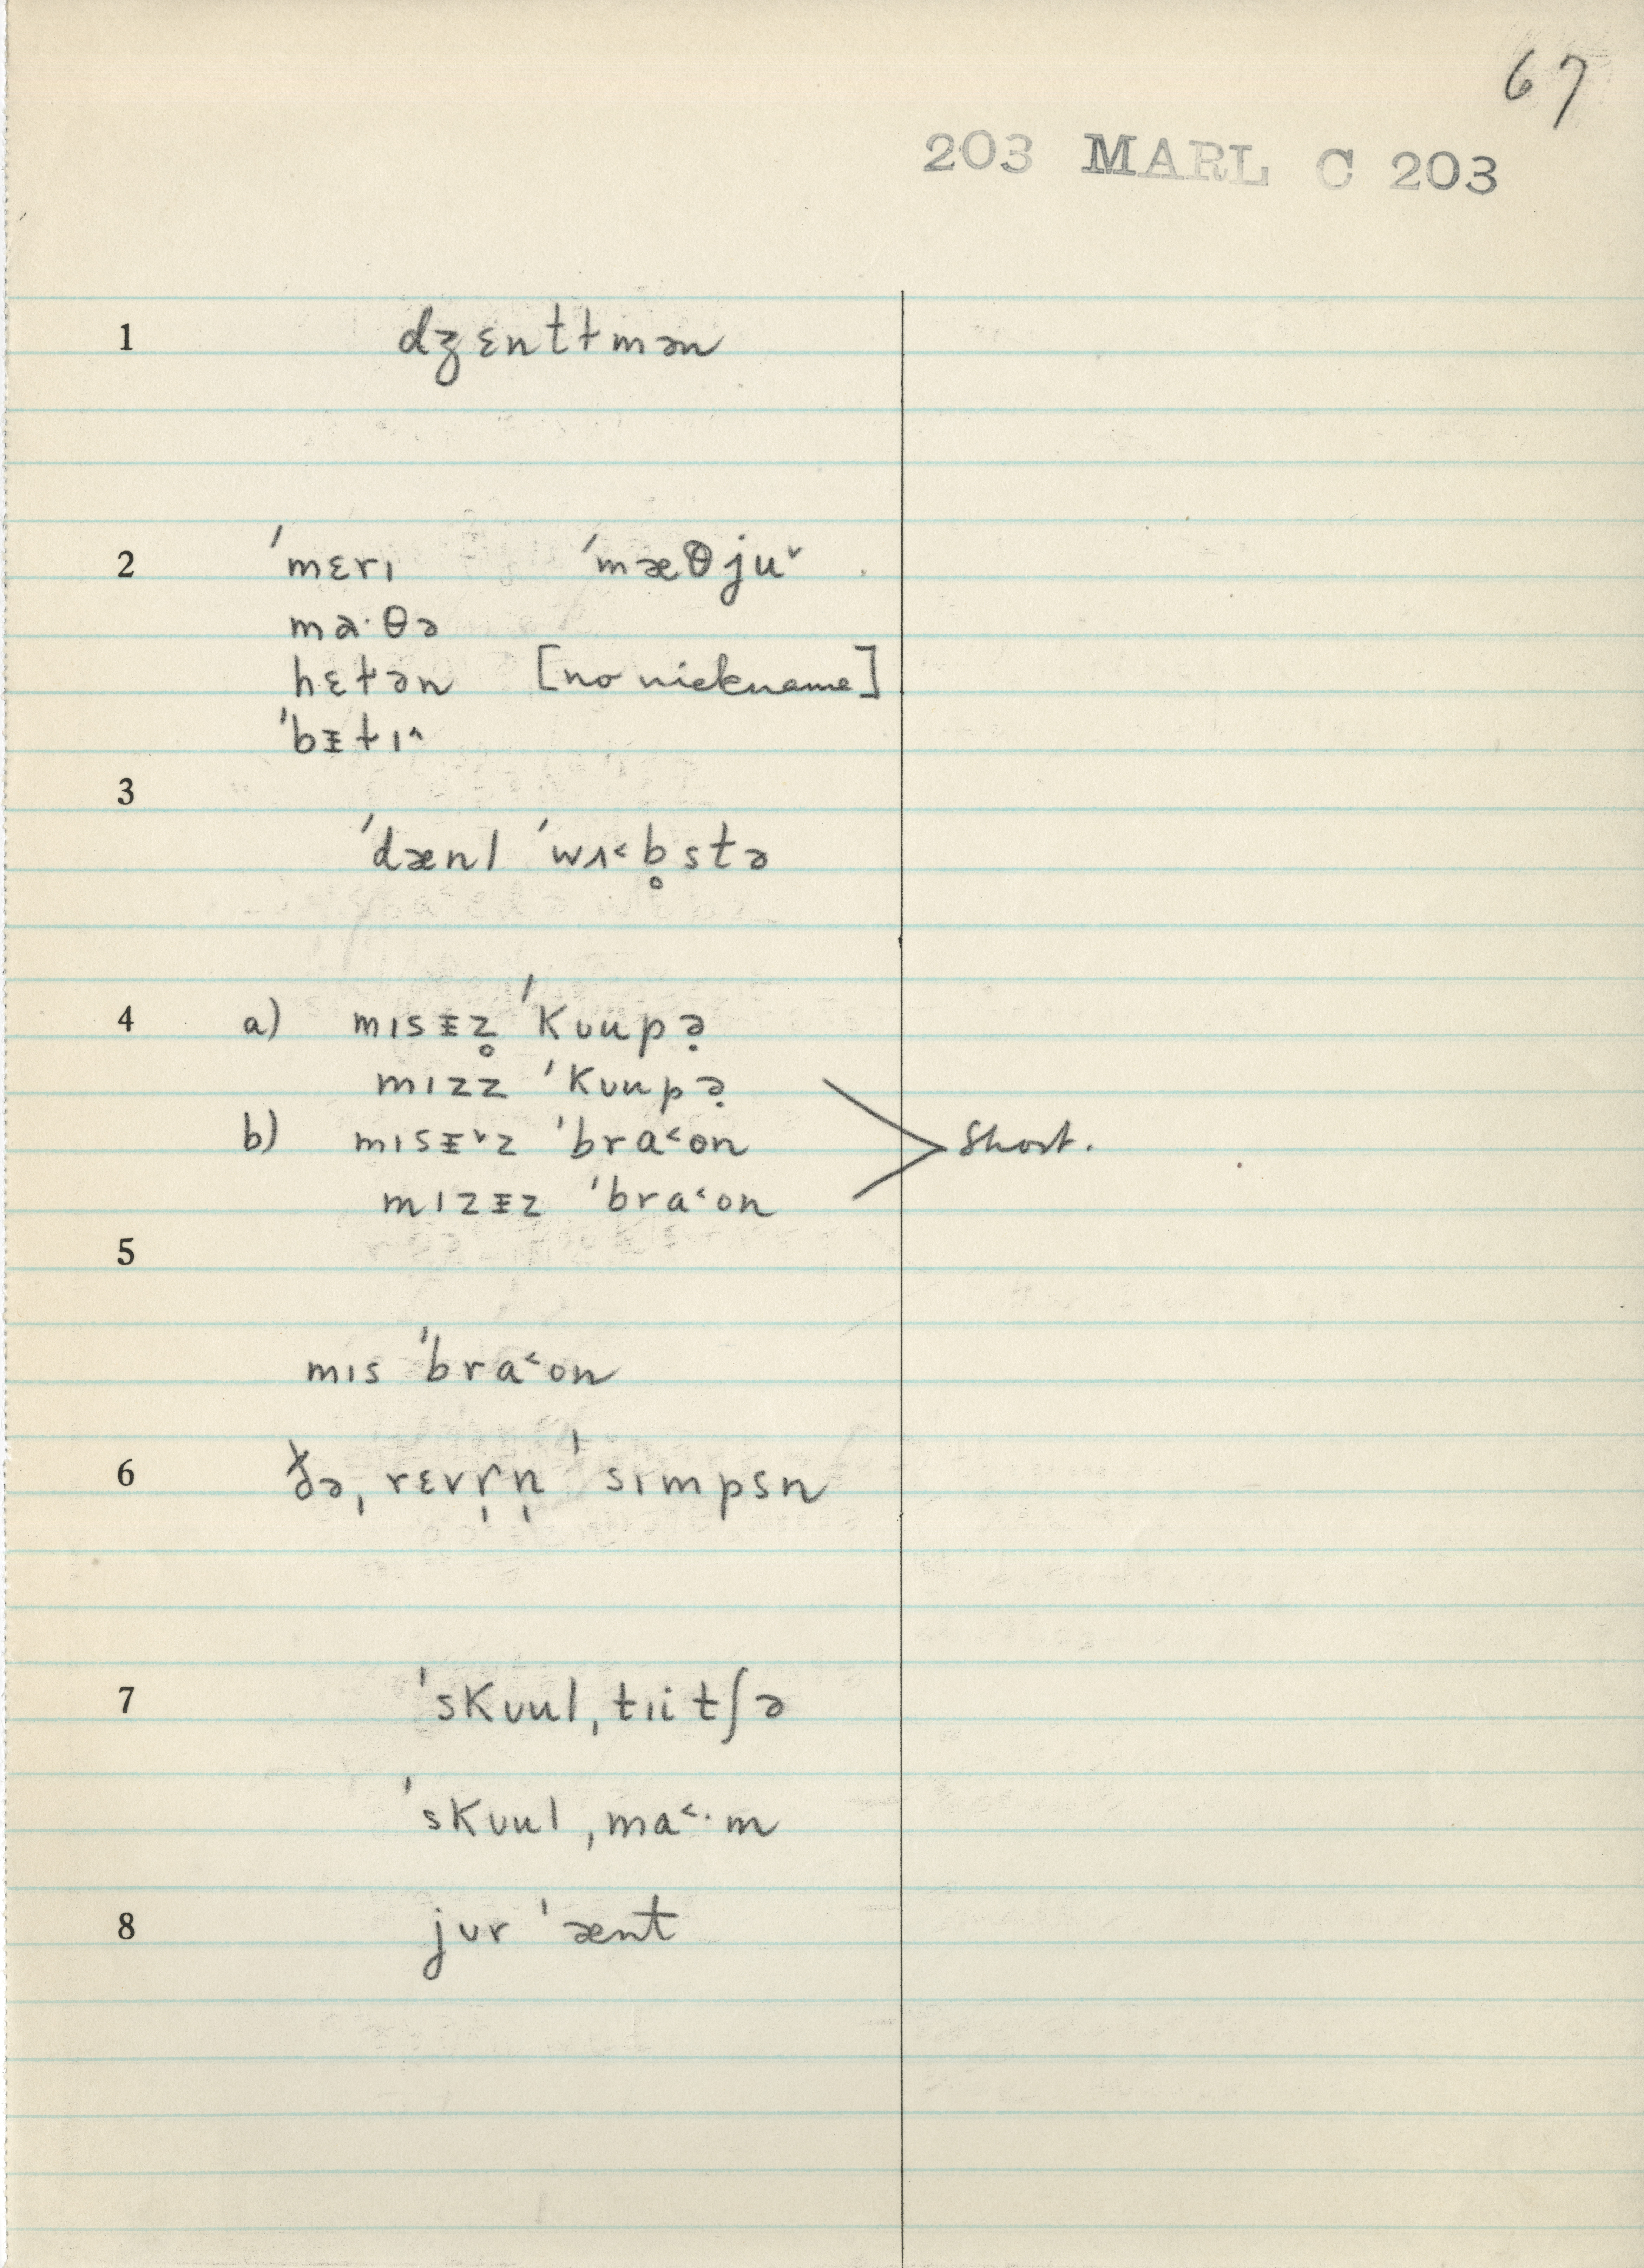 67
203 MARL C 203
1 dʒɛntɫmən
2 ˈmɛrɪ ˈmæθjuˇ
ma·θə
hɛɫən [no nickname]
ˈbᵻtɪ^
3
ˈdænl ˈwɜ˂b̥stə
4 a) mɪsᵻz̥ ˈkʊupə̣
mɪzz ˈkʊupə̣
b) mɪsᵻˇz ˈbra˂on
mɪzᵻz ˈbra˂on
Short.
5
mɪs ˈbra˂on
6 ðə ˌrɛvr̩n̩ ˈsɪmpsn
7 ˈskʊulˌtɪitʃə
ˈskʊulˌma˂·m
8 jʊr ˈænt